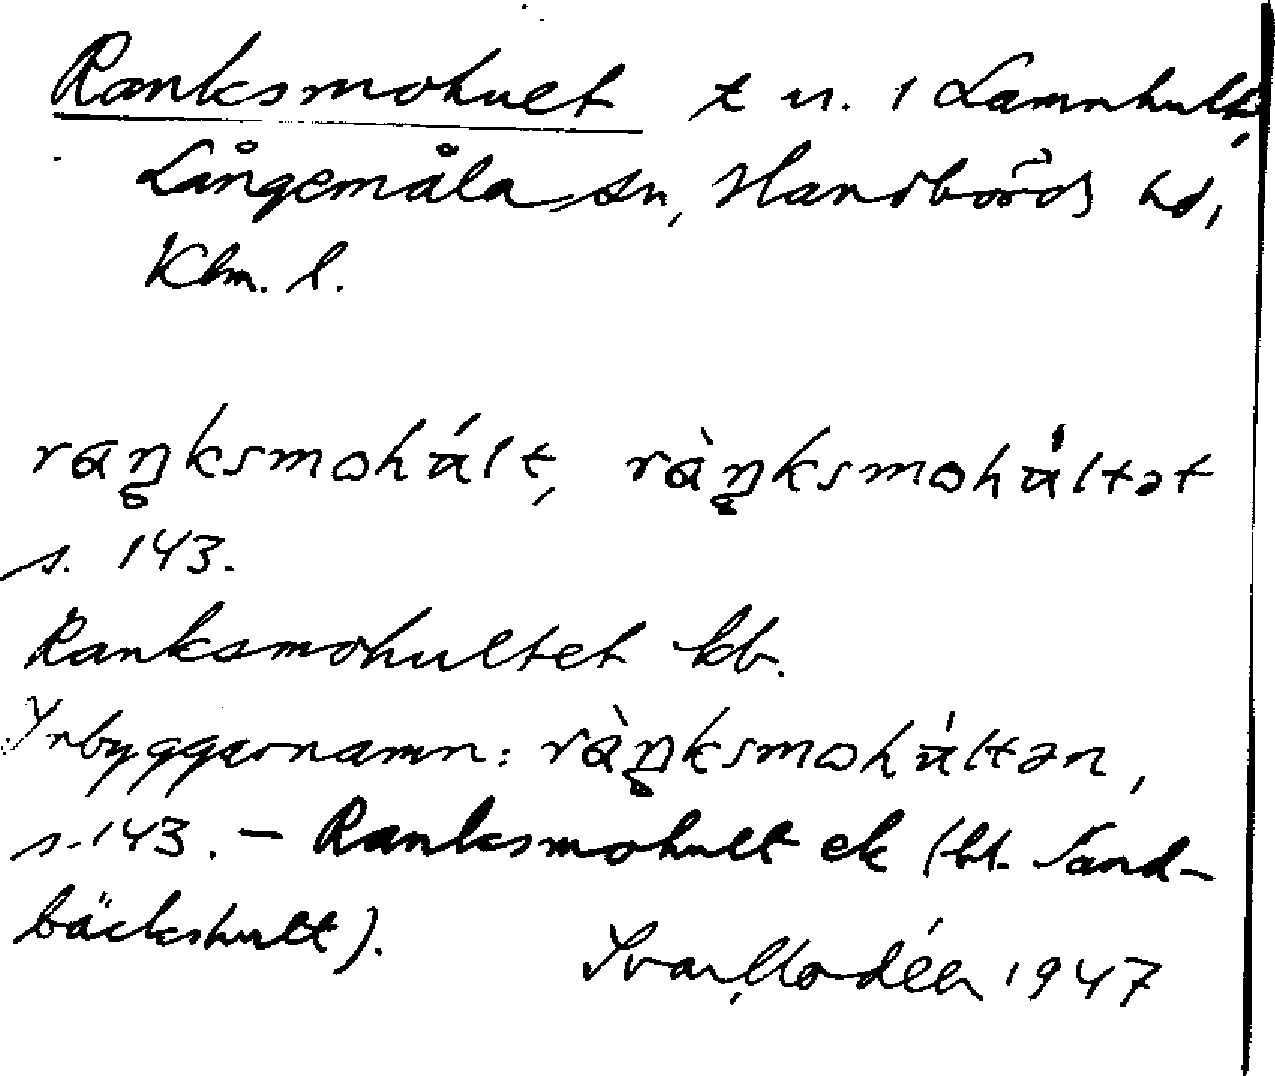 Ranksmohult t u. i Lamnhult,
Långemåla sn, Handbörds hd,
Klm. l.
raŋ̥ksmohált, ràŋ̥ksmoháltət
s. 143.
Ranksmohultet kb.
Inbyggarnamn: ràŋ̥ksmoháltən,
s. 143. – Ranksmohult ek (bl. Sand-
bäckshult).
Ivar Modéer 1947